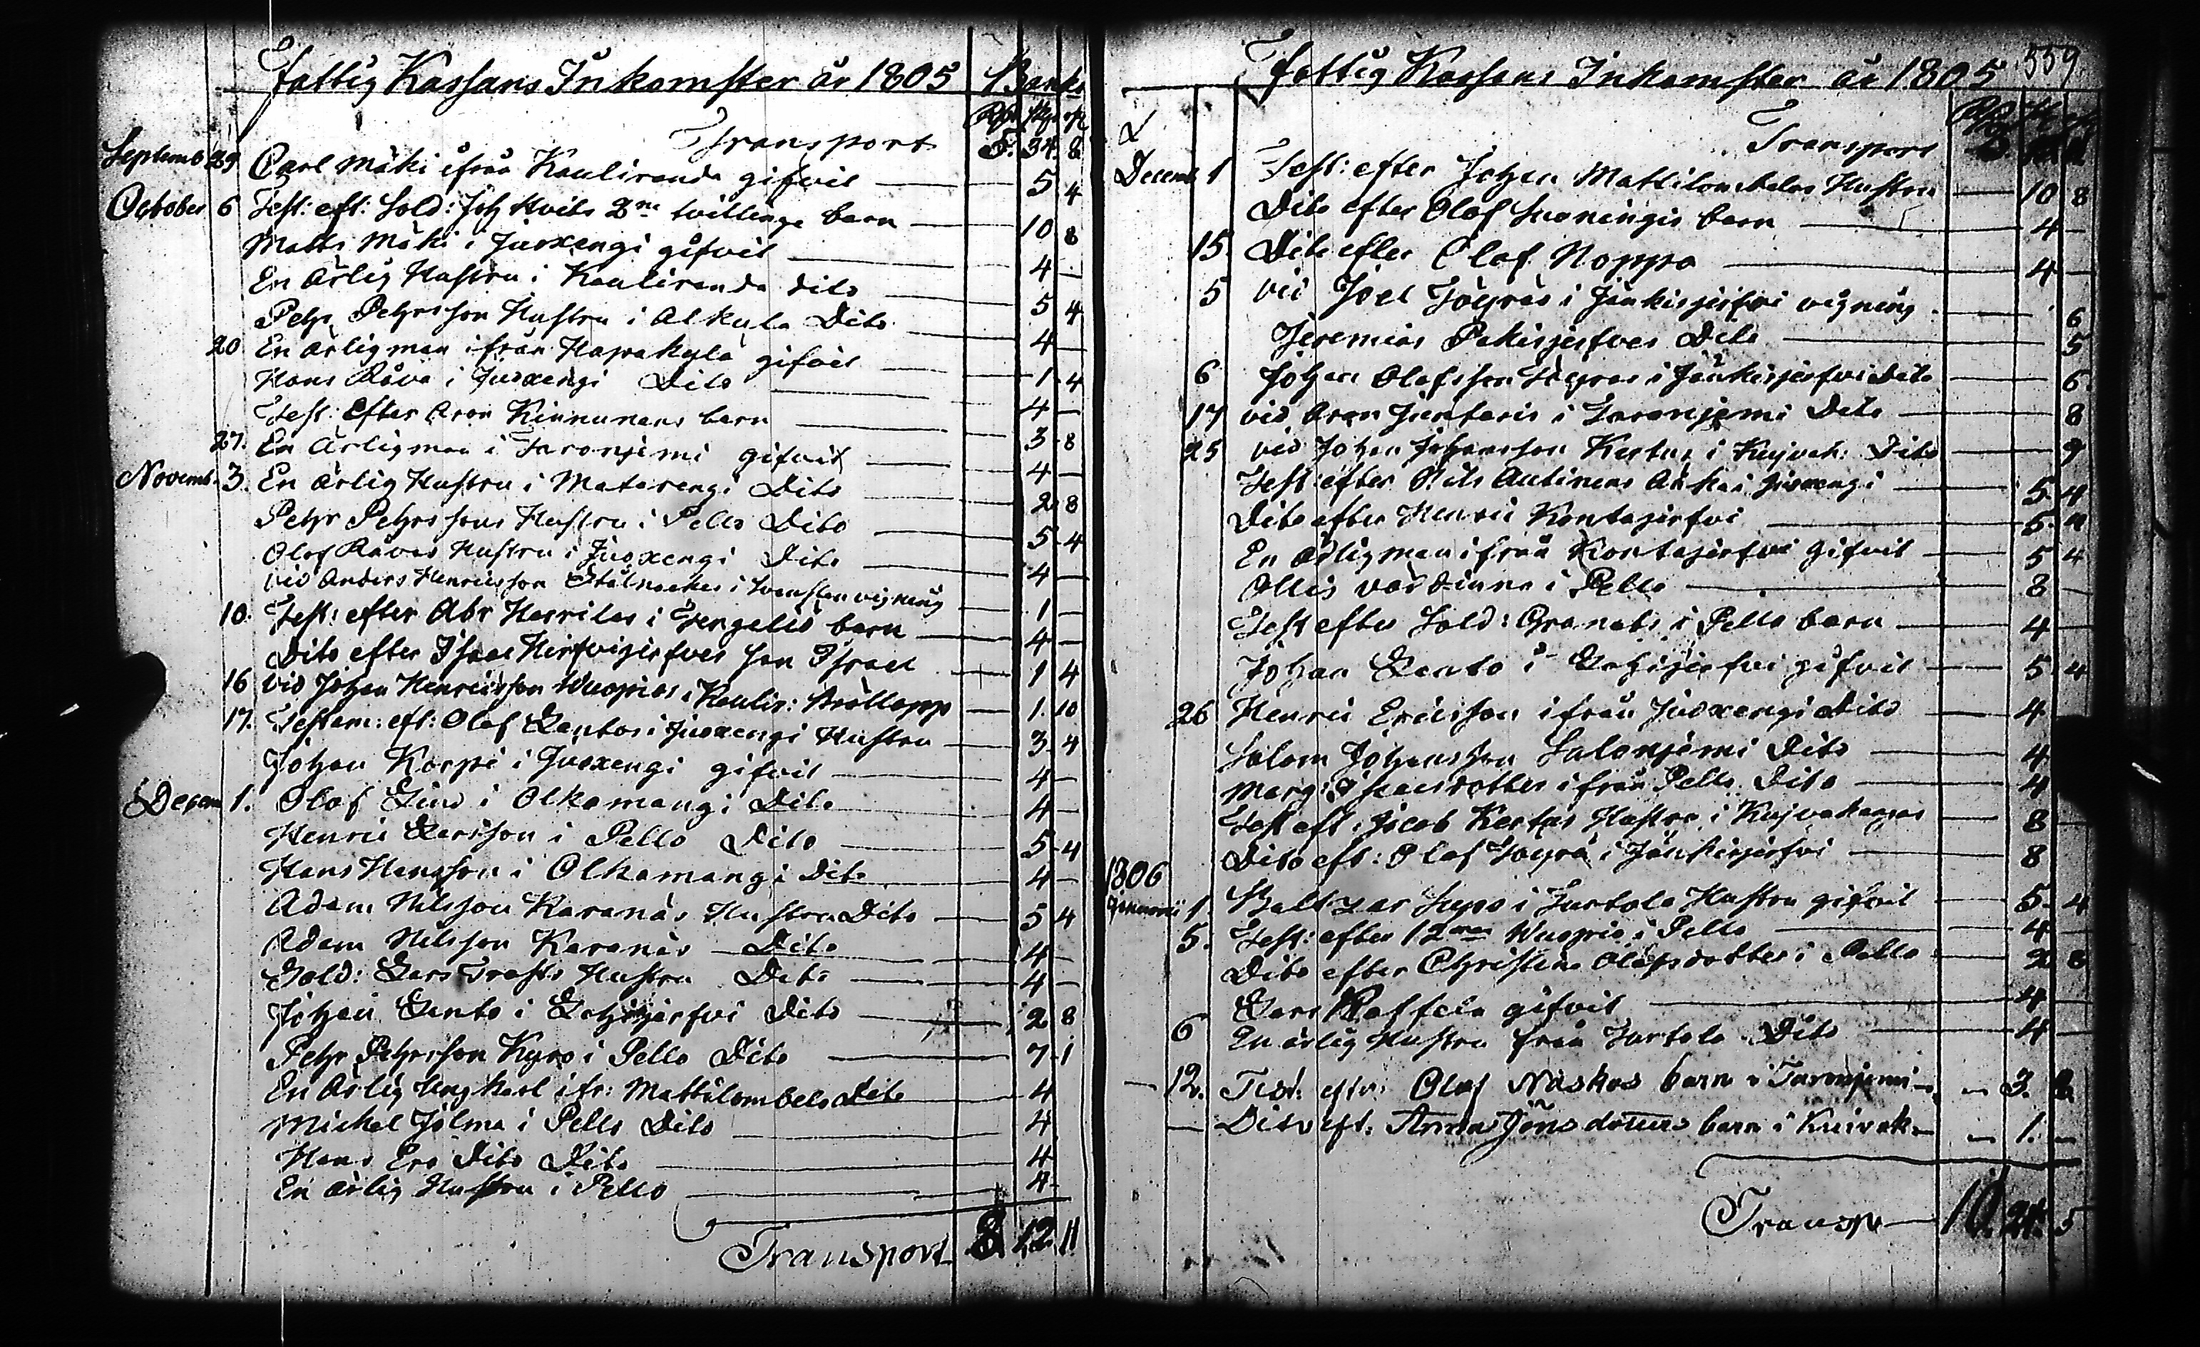 Fattig Kassans Inkomster år 1805 Banko
Rdr sk: r
Transport 5. 34. 8
Septemb 29 Carl Mäki ifrån Kauliranda gifvit 5 4
October 6 Test: eft: Sold: Joh Hvits 2ne tvillinge barn 10 8
Matts Mäki i Juoxengi gifvit 4 —
En ärlig Hustru i Kauliranda dito 5 4
Pehr Pehrsson Hustru i Alkula Dito 4 —
20 En ärlig man ifrån Haparkylä gifvit 1 4
Hans Råva i Juoxengi Dito 4 —
Test: Efter Aron Kinnunens barn 3 8
27. En Ärlig man i Taronjemi gifvit 4 —
Novemb. 3. En ärlig Hustru i Matarengi Dito 2 8
Pehr Pehrssons Hustru i Pello Dito 5 4
Olof Råvas Hustru i Juoxengi Dito 4 —
vid Anders Henricsson Stålnackes i vigning 1 —
10. Test: efter Abr Herrilas i Tengeliö barn 4 —
Dito efter Israel Hirfvijerfves son Israel 1 4
16 vid Johan Henricsson Wuopios i Kaulir: Bröllopp 1. 10
17. Testam: eft: Olof Lantos i Juoxengi Hustru 3 4
Johan Korpi i Juoxengi gifvit 4 —
Decem 1. Olof Lind i Olkamangi Dito 4 —
Henric Larsson i Pello Dito 5 4
Hans Hansson i Olkamangi Dito 4 —
Adam Nilsson Karanäs Hustru Dito 5 4
Adam Nilsson Karanäs Dito 4 —
Sold: Lars Trasts Hustru Dito 4 —
Johan Lanto i Lohijerfvi Dito 2 8
Pehr Pehrsson Kyrö i Pello Dito 7 1
En ärlig Ung karl ifr: Mattilombolo Dito 4
Michel Jolma i Pello Dito 4
Hans Ers Dito Dito 4
En ärlig Hustru i Pello 4
Transport 8. 12 11
Fattig Kassans Inkomster år 1805 559
Transport
Decemb 1 Test: efter Johan Mattilombolos Hustru 10 8
Dito efter Olof barn 4 —
15. Dito efter Olof Noppa 4 —
5 vid Joel Töyräs i Jänkisjerfvi vigning 6
Jeremias Pakisjerfves Dito 5
6 Johan Olofsson Töyräs i Jänkisjerfvi Dito 6
17 vid Aron Juntaris i Taronjemi Dito 8
25 vid Johan Johansson Kertus i Kujvak: Dito 9
Test efter Nils Antinens i Juoxengi 5 4
Dito efter Henric Kontajerfvi 5. 4
En ärlig man ifrån Kontajerfvi Gifvit 5 4
Ollis värdinna i Pello 8 —
Test efter Sold: Granats i Pello barn 4 —
Johan Lanto i Lohijerfvi gifvit 5 4
26 Henric Ericsson ifrån Juoxengi Dito 4
Salom Johansson Salonjemi Dito 4
Marg: Isacsdotter ifrån Pello Dito 4
Test eft: Jacob Kertus Hustru i Kujvakangas 8 —
Dito eft: Olof Töyrä i Jänkisjerfvi 8
1806
Januarii 1. Baltzar i Turtola Hustru gifvit 5 4
5. Test: efter 12man Wuopio i Pello 4 —
Dito efter Christina Olofsdotter i Pello 2 8
Lars Raffela gifvit 4
6 En ärlig Hustru från Turtola Dito 4
— 12. Test: eftr: Olof Naskas barn i Taronjemi 3.
— Dito eft. Anna Jönsdotters barn i Kuivak 1.
Transp 10. 24. 5